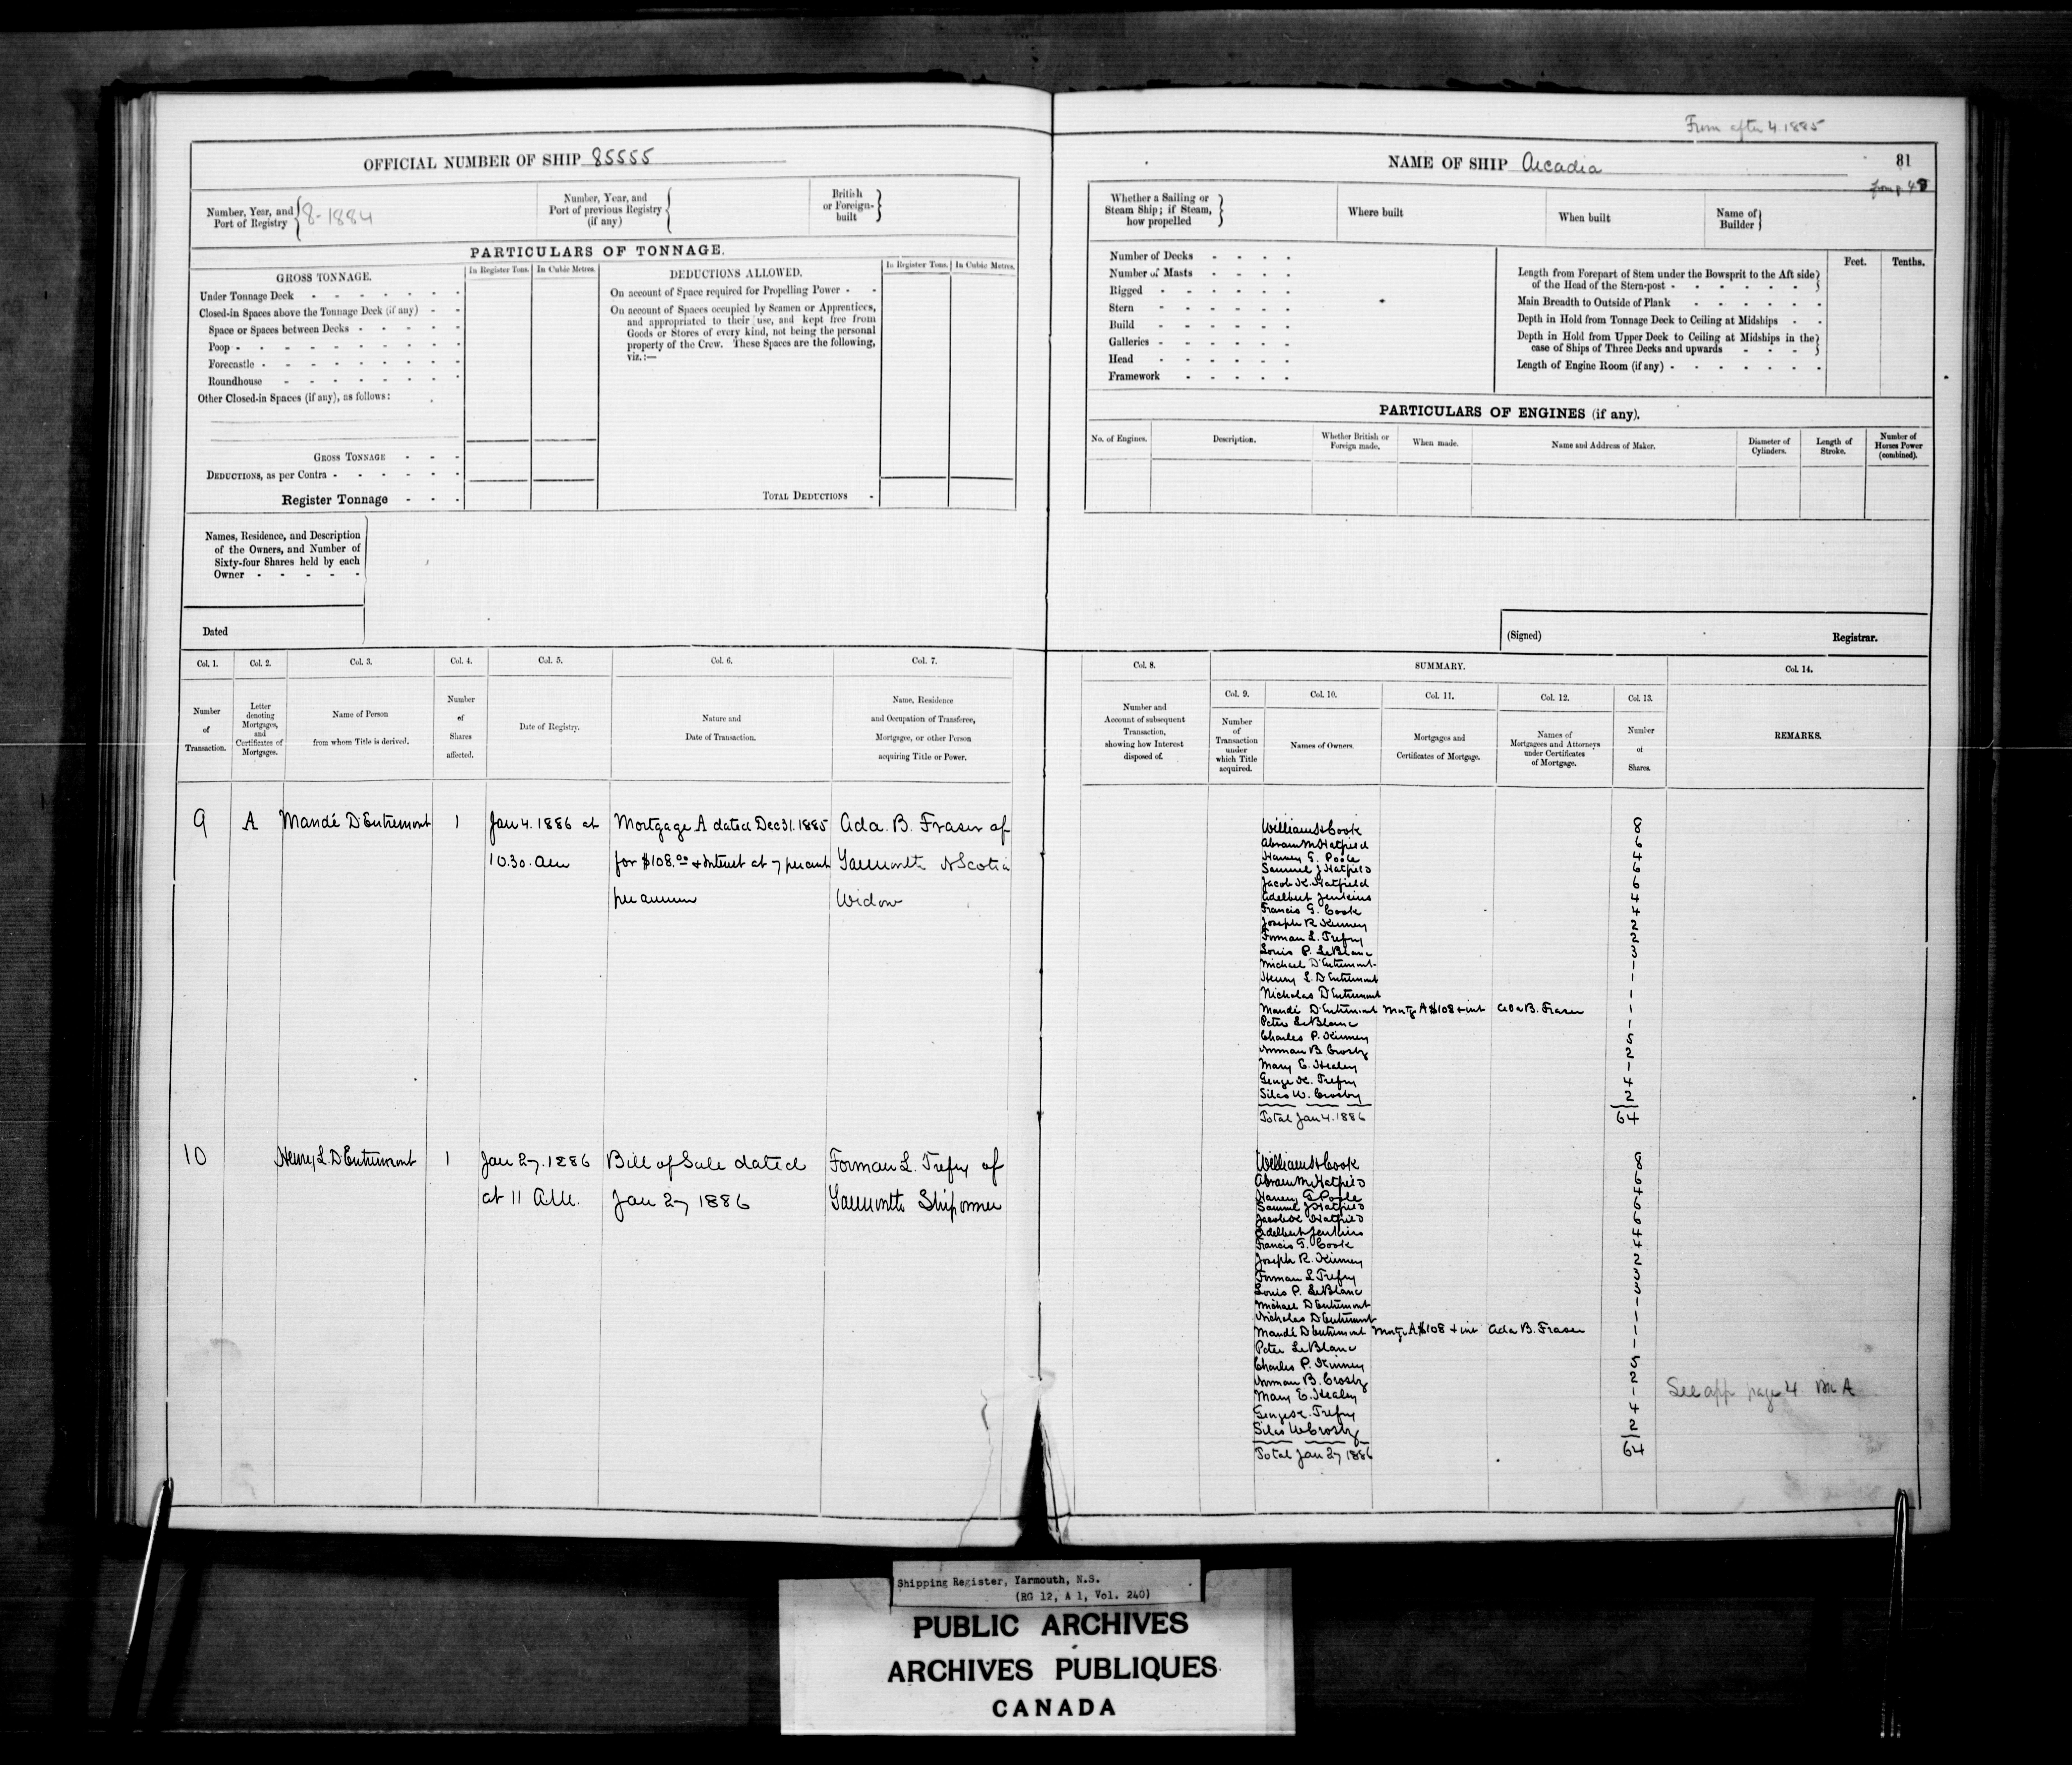 From after 4.1885
OFFICIAL NUMBER OF SHIP 85555
NAME OF SHIP Arcadia
81
from p 48
Number, Year, and Port of Registry 8-1884
Number, Year, and Port of previous Registry (if any)
British or Foreign-built
Whether a Sailing or Steam Ship; if Steam, how propelled
Where built
When built
Name of Builder
PARTICULARS OF TONNAGE.
GROSS TONNAGE.
In Register Tons.
In Cubic Metres.
Under Tonnage Deck
Closed-in Spaces above the Tonnage Deck (if any)
Space or Spaces between Decks
Poop
Forecastle
Roundhouse
Other Closed-in Spaces (if any), as follows:
GROSS TONNAGE
DEDUCTIONS, as per Contra
Register Tonnage
DEDUCTIONS ALLOWED.
In Register Tons.
In Cubic Metres.
On account of Space required for Propelling Power
On account of Spaces occupied by Seamen or Apprentices,
and appropriated to their use, and kept free from
Goods or Stores of every kind, not being the personal
property of the Crew. These Spaces are the following,
viz.:—
TOTAL DEDUCTIONS
Number of Decks
Number of Masts
Rigged
Stern
Build
Galleries
Head
Framework
Feet.
Tenths.
Length from Forepart of Stem under the Bowsprit to the Aft side
of the Head of the Stern-post
Main Breadth to Outside of Plank
Depth in Hold from Tonnage Deck to Ceiling at Midships
Depth in Hold from Upper Deck to Ceiling at Midships in the
case of Ships of Three Decks and upwards
Length of Engine Room (if any)
PARTICULARS OF ENGINES (if any).
No. of Engines.
Description.
Whether British or Foreign made.
When made.
Name and Address of Maker.
Diameter of Cylinders.
Length of Stroke.
Number of Horses Power (combined).
Names, Residence, and Description
of the Owners, and Number of
Sixty-four Shares held by each
Owner
Dated
(Signed)
Registrar.
Col. 1.
Number of Transaction.
Col. 2.
Letter denoting Mortgages, and Certificates of Mortgages.
Col. 3.
Name of Person from whom Title is derived.
Col. 4.
Number of Shares affected.
Col. 5.
Date of Registry.
Col. 6.
Nature and Date of Transaction.
Col. 7.
Name, Residence and Occupation of Transferee, Mortgagee, or other Person acquiring Title or Power.
Col. 8.
Number and Account of subsequent Transaction, showing how Interest disposed of.
SUMMARY.
Col. 9.
Number of Transaction under which Title acquired.
Col. 10.
Names of Owners.
Col. 11.
Mortgages and Certificates of Mortgage.
Col. 12.
Names of Mortgagees and Attorneys under Certificates of Mortgage.
Col. 13.
Number of Shares.
Col. 14.
REMARKS.
9 A Mandé D'Entremont 1 Jan 4. 1886 at Mortgage A dated Dec 31. 1885 Ada. B. Fraser of
10.30. am for $108.00 + Interest at 7 percent Yarmouth N Scotia
per annum Widow
William H Cook 8
Abram M Hatfield 6
Harvey G. Poole 4
Samuel J Hatfield 6
Jacob K. Hatfield 6
Adelbert Jenkins 4
Francis G. Cook 4
Joseph R Kinney 2
Forman L. Trefry 2
Louis P. LeBlanc 3
Michael D'Entremont 1
Henry L. D'Entremont 1
Nicholas D'Entremont 1
Mandé D'Entremont Mortge A $108 + int Ada B. Fraser 1
Peter LeBlanc 1
Charles P. Kinney 5
Norman B. Crosby 2
Mary E. Healey 1
George K. Trefry 4
Silas W. Crosby 2
Total Jan 4. 1886 64
10 Henry L. D'Entremont 1 Jan 27. 1886 Bill of Sale dated Forman L. Trefry of
at 11 A.M. Jan 27 1886 Yarmouth Shipowner
William H Cook 8
Abram M Hatfield 6
Harvey G Poole 4
Samuel J Hatfield 6
Jacob K Hatfield 6
Adelbert Jenkins 4
Francis G. Cook 4
Joseph R. Kinney 2
Forman L Trefry 3
Louis P. LeBlanc 3
Michael D'Entremont 1
Nicholas D'Entremont 1
Mandé D'Entremont Mortge A $108 + int Ada B. Fraser 1
Peter LeBlanc 1
Charles P. Kinney 5
Norman B. Crosby 2
Mary E. Healey 1
George K. Trefry 4
Silas W Crosby 2
Total Jan 27 1886 64
See app page 4 Bk A
Shipping Register, Yarmouth, N.S.
(RG 12, A 1, Vol. 240)
PUBLIC ARCHIVES
ARCHIVES PUBLIQUES
CANADA